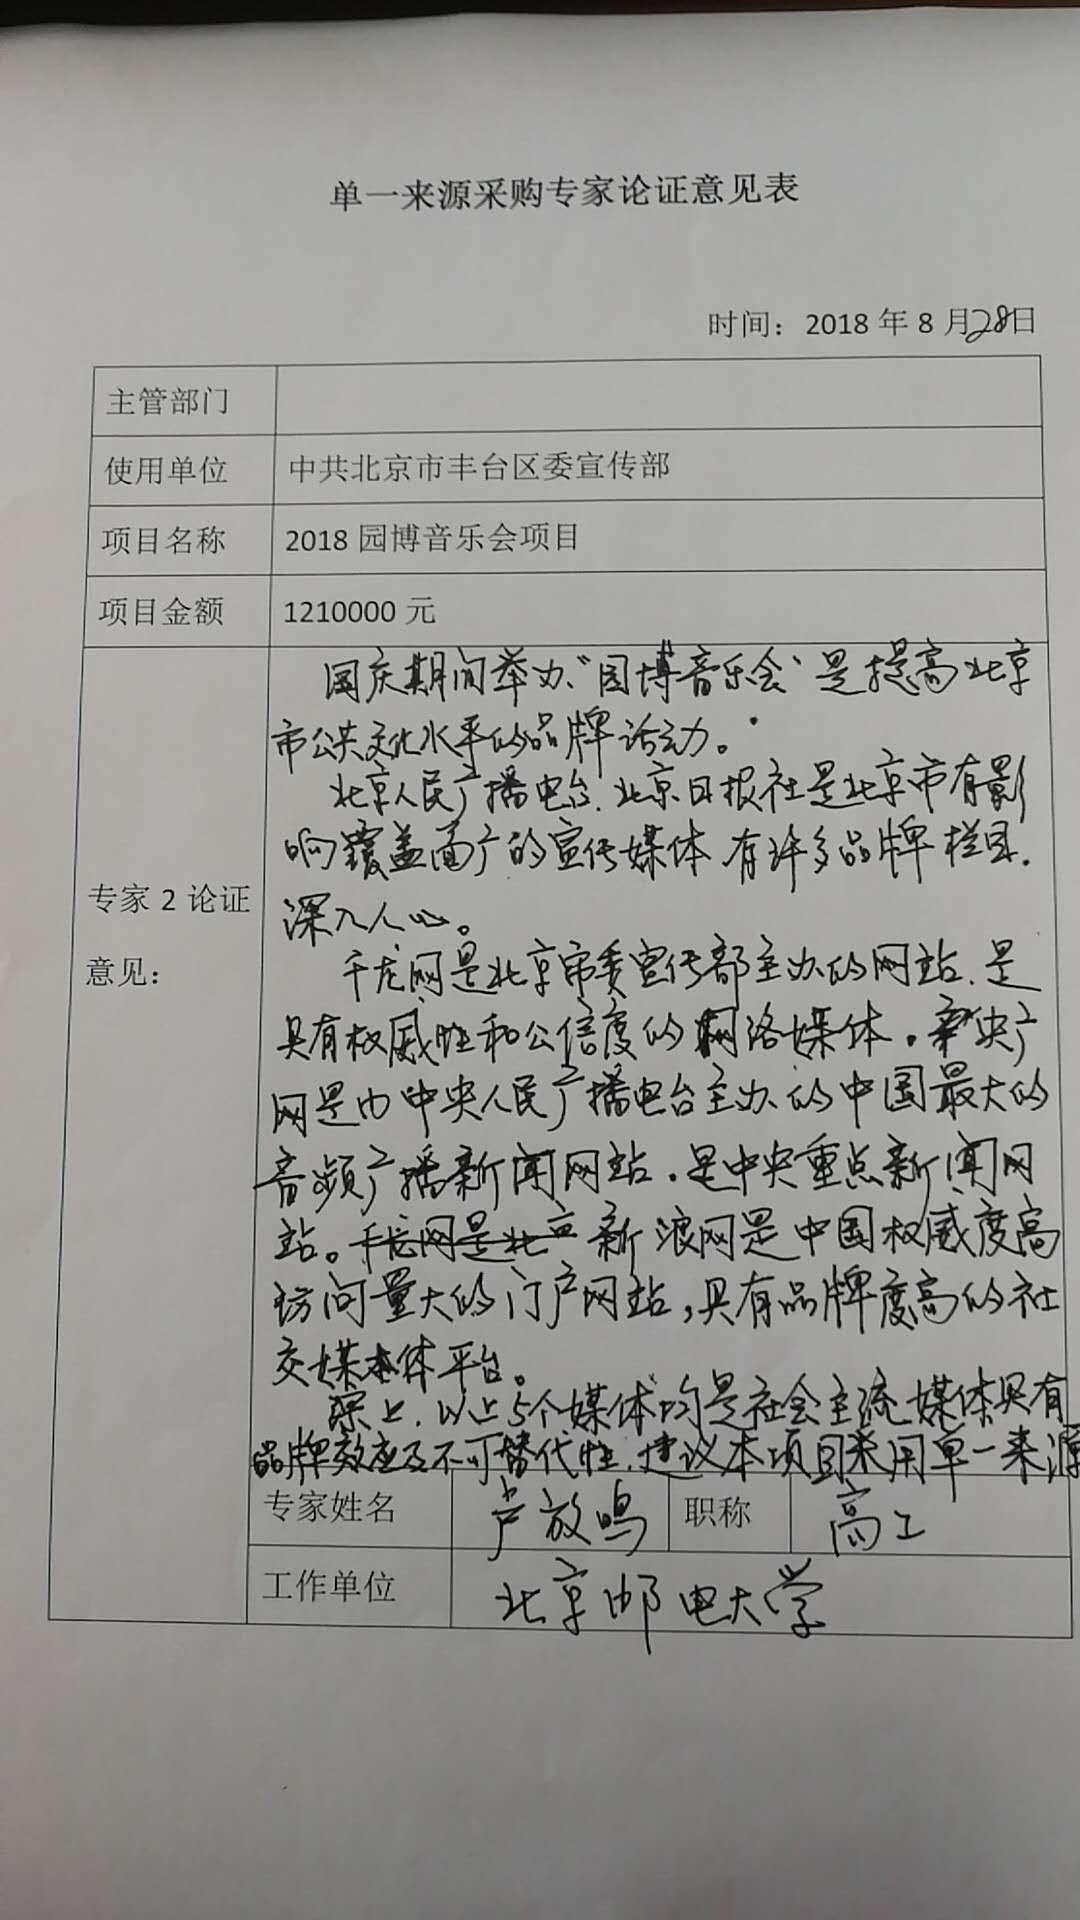 单一来源采购专家论证意见表
时间：2018年8月28日
主管部门
使用单位 中共北京市丰台区委宣传部
项目名称 2018园博音乐会项目
项目金额 1210000元
专家2论证
意见：
国庆期间举办“园博音乐会”是提高北京
市公共文化水平的品牌活动。
北京人民广播电台、北京日报社是北京市有影
响覆盖面广的宣传媒体 有许多品牌栏目，
深入人心。
千龙网是北京市委宣传部主办的网站，是
具有权威性和公信度的网络媒体。央广
网是由中央人民广播电台主办的中国最大的
音频广播新闻网站，是中央重点新闻网
站。千龙网是北京 新浪网是中国权威度高
访问量大的门户网站，具有品牌度高的社
交媒体平台。
综上，以上5个媒体均是社会主流媒体具有
品牌效应及不可替代性，建议本项目采用单一来源
专家姓名 芦放鸣 职称 高工
工作单位 北京邮电大学